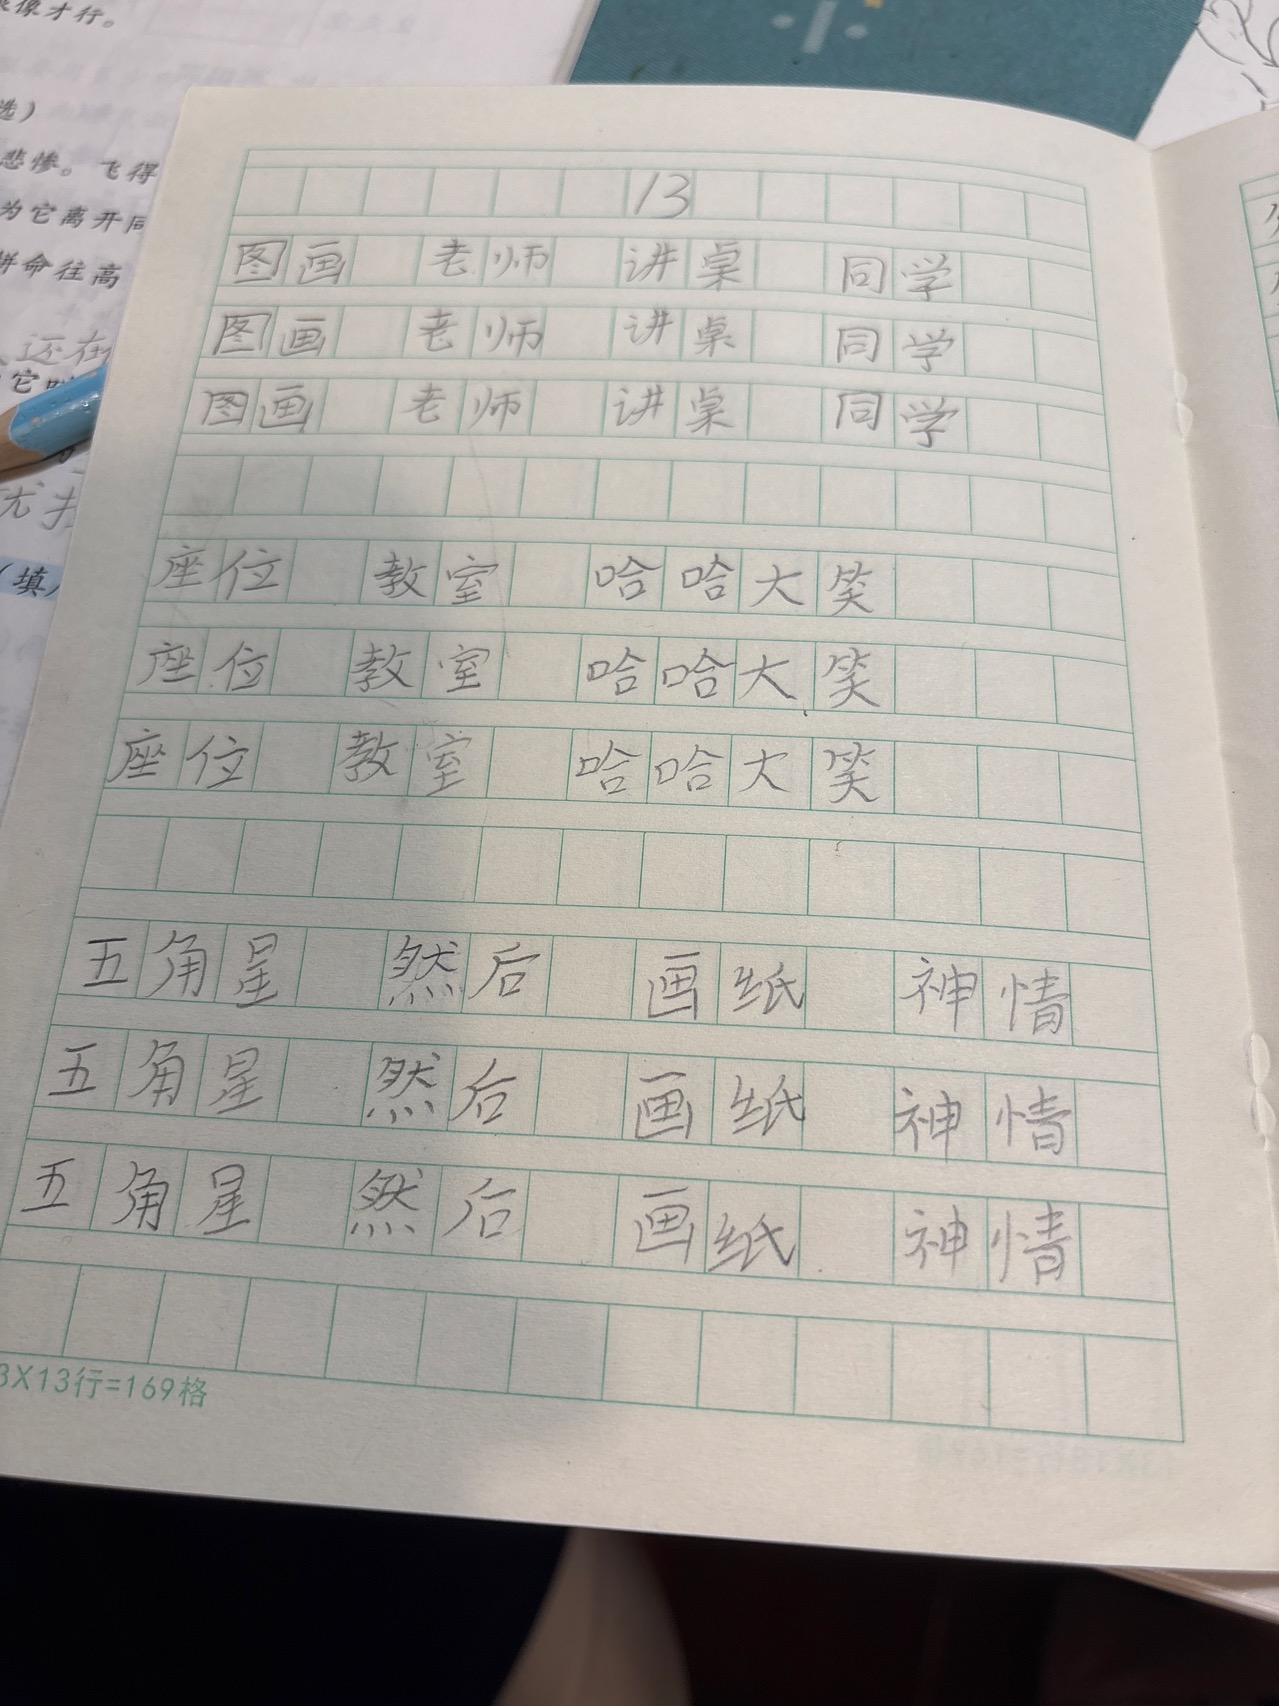 像才行。
选）
悲惨。飞得
为它离开同
拼命往高
还在
它
尤
（填
13
图画 老师 讲桌 同学
图画 老师 讲桌 同学
图画 老师 讲桌 同学
座位 教室 哈哈大笑
座位 教室 哈哈大笑
座位 教室 哈哈大笑
五角星 然后 画纸 神情
五角星 然后 画纸 神情
五角星 然后 画纸 神情
3X13行=169格